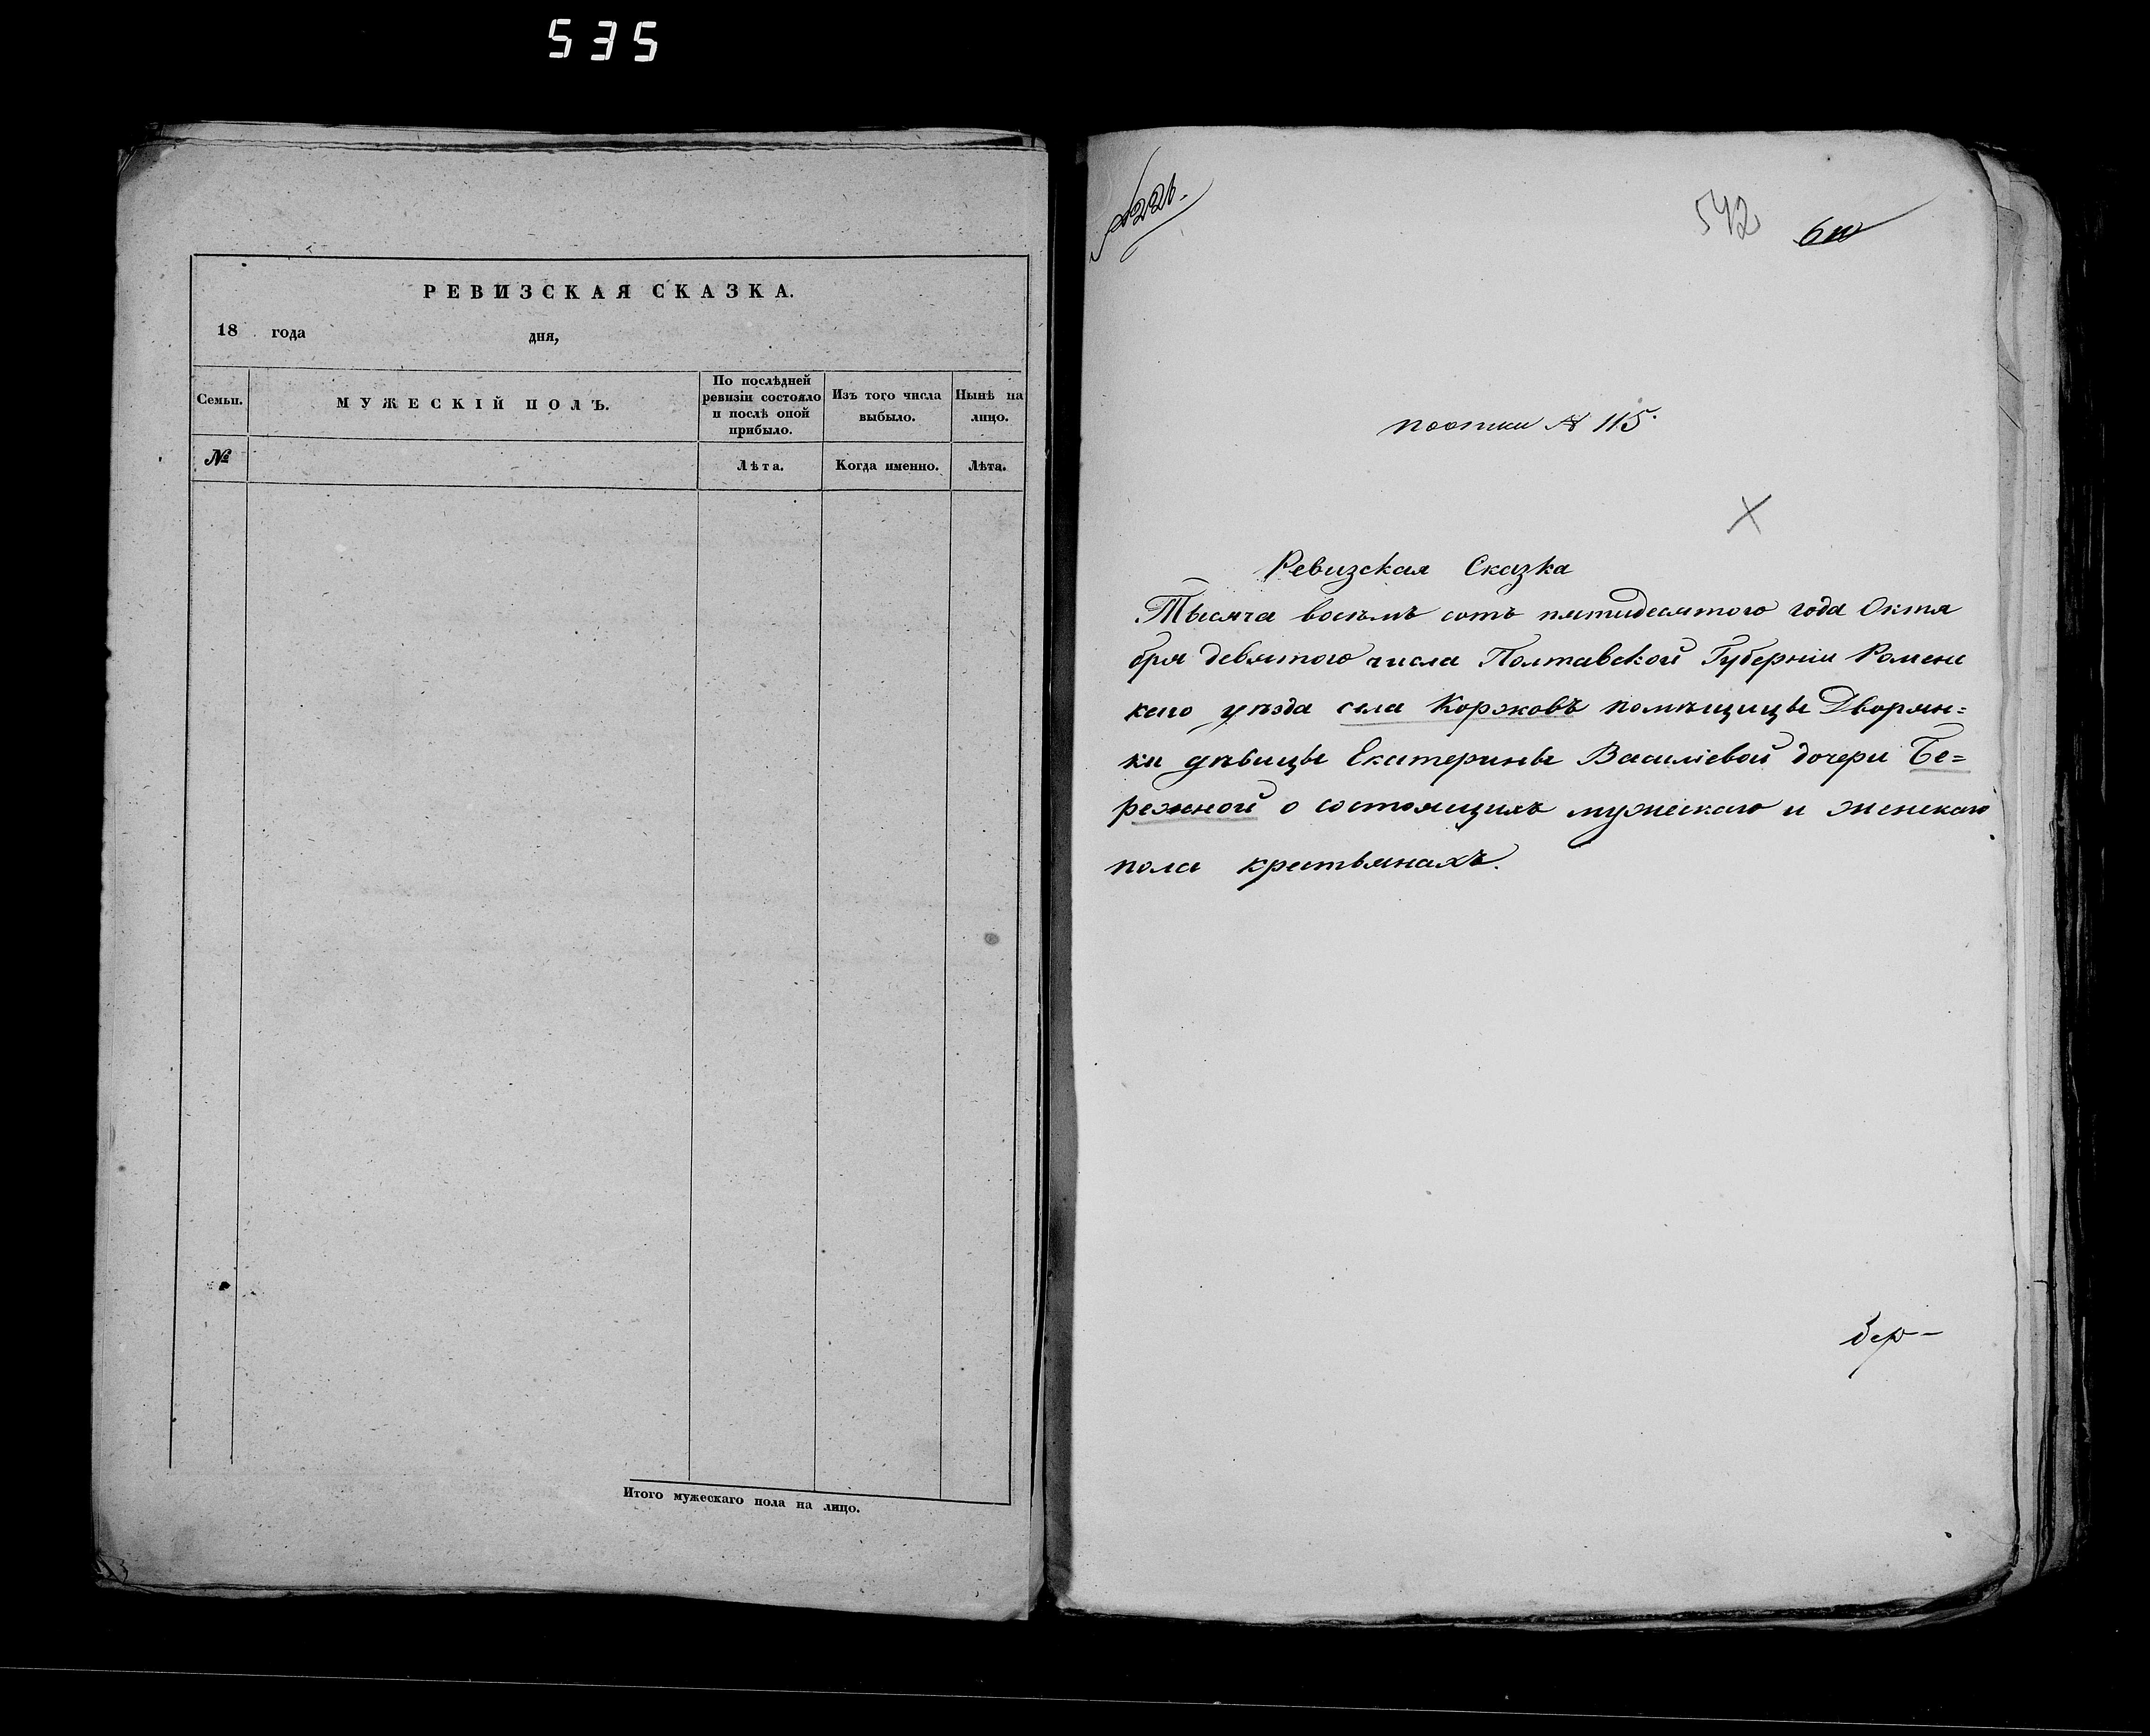 535
РЕВИЗСКАЯ СКАЗКА.
18 года дня,
Семьи.
МУЖЕСКІЙ ПОЛЪ.
По послѣдней
ревизіи состояло
и послѣ оной
прибыло.
Изъ того числа
выбыло.
Нынѣ на
лицо.
№
Лѣта.
Когда именно.
Лѣта.
Итого мужескаго пола на лицо.
542
№ 115
Ревизская Сказка
Тысяча восемь сотъ пятидесятого года Октя
бря девятого числа Полтавской Губерніи Роменс
кого уѣзда села Коржовъ помѣщицы Дворян=
ки дѣвицы Екатерины Василіевой дочери Бе=
режной о состоящихъ мужескаго и женскаго
пола крестьянахъ.